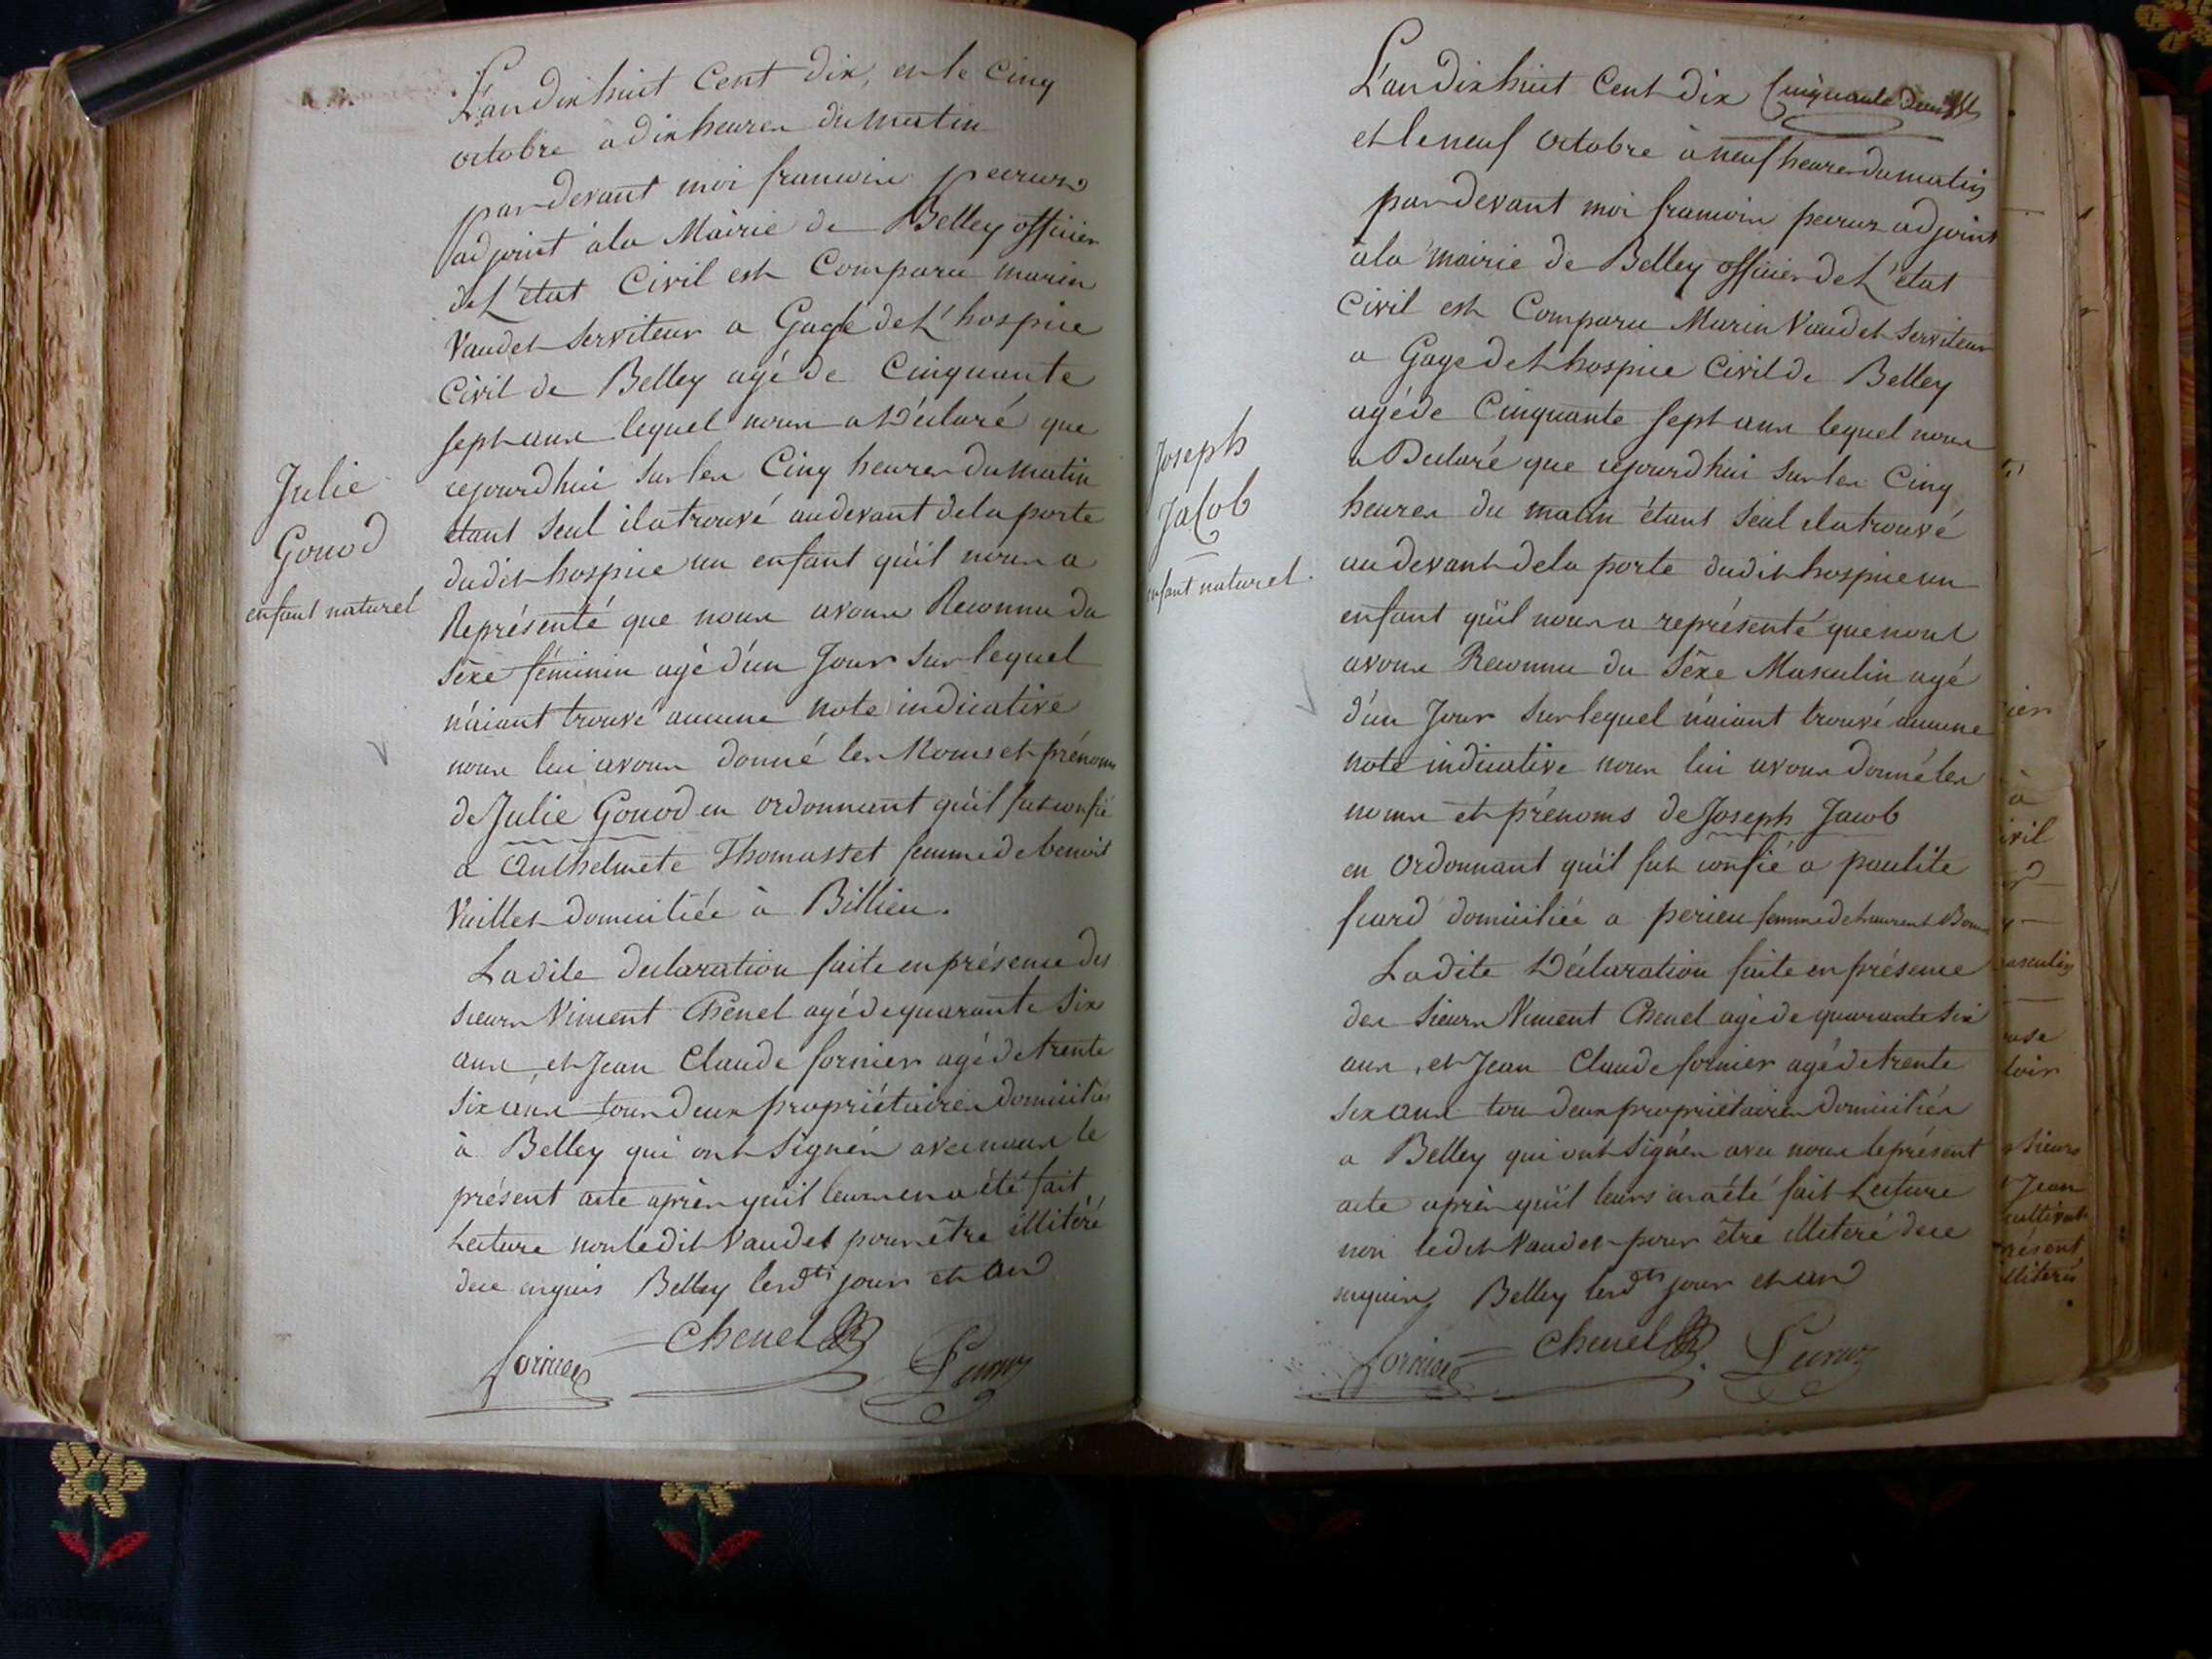 L'an dix huit Cent dix, et le Cinq
octobre à dix heures du matin
pardevant moi francois peeruz
adjoint à la Mairie de Belley officier
de L'état Civil est Comparu marin
Vaudet Serviteur a Gage de L'hospice
Civil de Belley agé de Cinquante
Sept ans lequel nous a Déclaré que
cejourdhui sur les Cinq heures du matin
étant Seul il a trouvé au devant de la porte
dudit hospice un enfant qu'il nous a
Représenté que nous avons Reconnu du
Séxe féminin agé d'un Jour sur lequel
n'aiant trouvé aucune note indicative
nous lui avons donné les Noms et prénoms
de Julie Gonod en ordonnant qu'il fut confié
a Anthelmete Thomasset femme de benoit
Vuillet domiciliée à Billieu.
Ladite declaration faite en présence des
sieurs Vincent Chenel agé de quarante Six
ans, et Jean Claude fornier agé de trente
six ans tous deux propriétaires domiciliés
à Belley qui ont Signés avec nous le
présent acte après qu'il leurs en a été fait
Lecture non ledit Vaudet pour être illitéré
de ce enquis Belley lesdts jour et an
fornier Chenel
Julie
Gonod
enfant naturel
L'an dix huit Cent dix Cinquante deux
et le neuf octobre à neuf heures du matin
pardevant moi francois peeruz adjoint
à la mairie de Belley officier de L'état
Civil est Comparu Marin Vaudet Serviteur
a Gage de L'hospice Civil de Belley
agé de Cinquante Sept ans lequel nous
a Declaré que cejourdhui sur les Cinq
heures du matin étant Seul il a trouvé
au devant de la porte dudit hospice un
enfant qu'il nous a représenté que nous
avons Reconnu du Séxe Masculin agé
d'un Jour sur lequel n'aiant trouvé aucune
note indicative nous lui avons donné les
noms et prénoms de Joseph Jacob
en ordonnant qu'il fut confié a
domiciliée a perieu femme de Laurent
Ladite Déclaration faite en présence
des Sieurs Vincent Chenel agé de quarante Six
ans, et Jean Claude fornier agé de trente
six ans tou deux propriétaires domiciliés
a Belley qui ont Signés avec nous le présent
acte après qu'il leurs en a été fait Lecture
non ledit Vaudet pour être illiteré de ce
enquis Belley lesdts jour et an
fornier Chenel
Joseph
Jacob
enfant naturel.